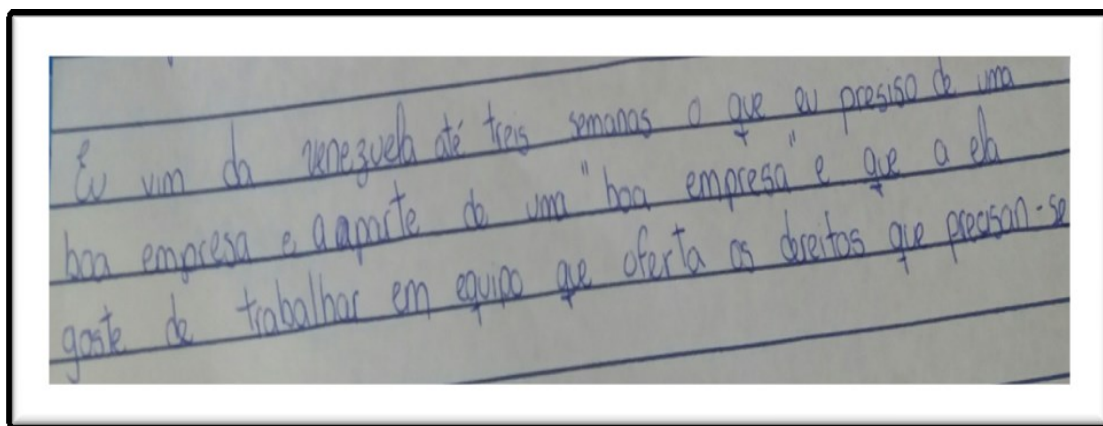 Eu vim da venezuela até treis semanas o que eu presiso de uma
boa empresa e aaparte do uma "boa empresa" e que a ela
goste de trabalhar em equipo que oferta os dereitos que precisan-se